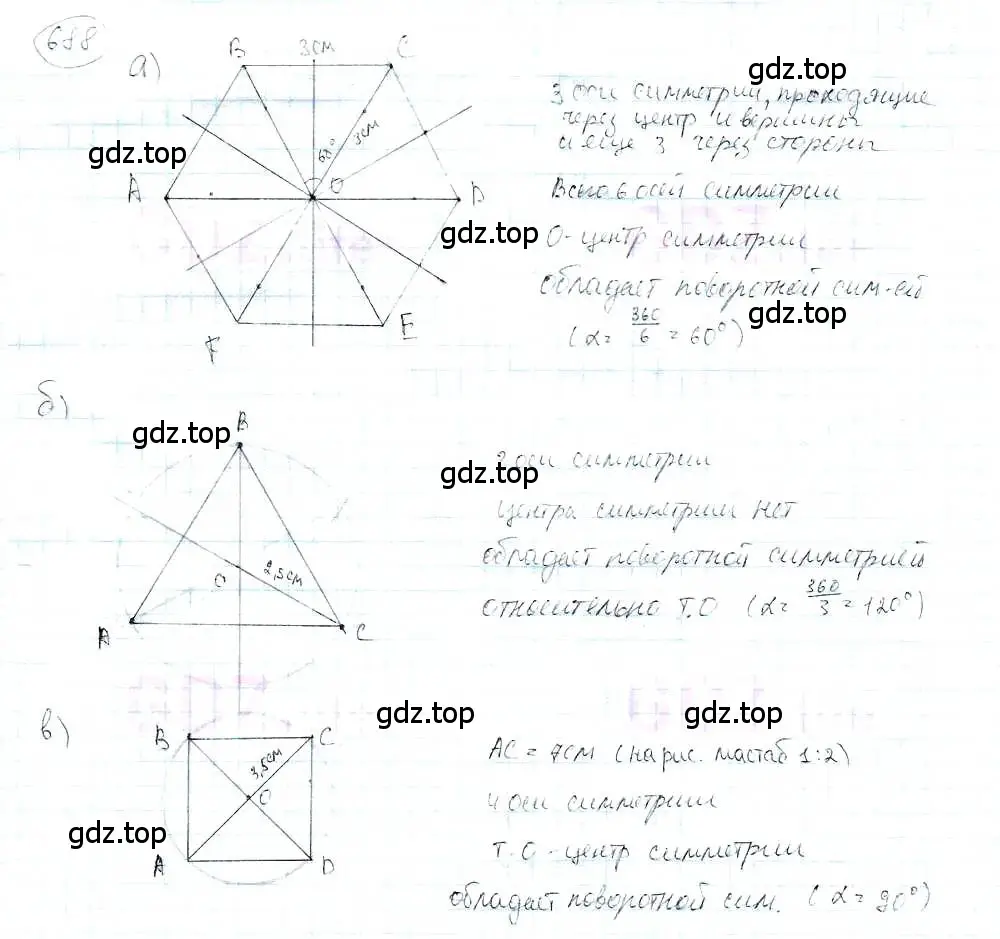 688
а)
B 3см C
gdz.top
3 оси симметрии, проходящие
через центр и вершины
и еще 3 через стороны
gdz.top
60° 3см
A O D
Всего 6 осей симметрии
gdz.top
O - центр симметрии
обладает поворотной сим-ей
gdz.top
(α = 360/6 = 60°)
F E
б)
B
gdz.top
оси симметрии
gdz.top
центра симметрии нет
обладает поворотной симметрией
O 2,5см
относительно т.O (α = 360/3 = 120°)
A C
gdz.top gdz.top
в)
B C
3,5см
O
A D
AC = 7см (на рис. мастаб 1:2)
4 оси симметрии
gdz.top
т.O - центр симметрии
обладает поворотной сим. (α = 90°)